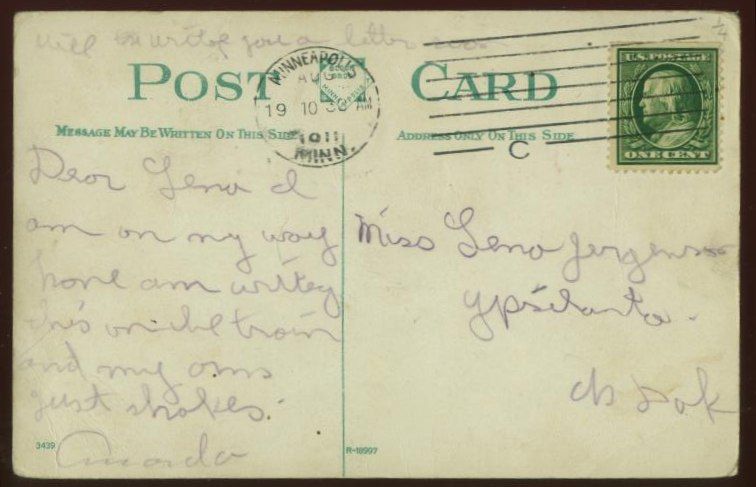 will be writing you a letter soon
POST CARD
MINNEAPOLIS
AUG
19 10 30 AM
1911
MINN.
C
U.S. POSTAGE
ONE CENT
1/4
MESSAGE MAY BE WRITTEN ON THIS SIDE
ADDRESS ONLY ON THIS SIDE
Dear Lena I
am on my way
home am writeg
this on the train
and my arms
just shakes.
Amanda
Miss Lena Jergenson
Ypsilanta.
N Dak
3439
R-18997